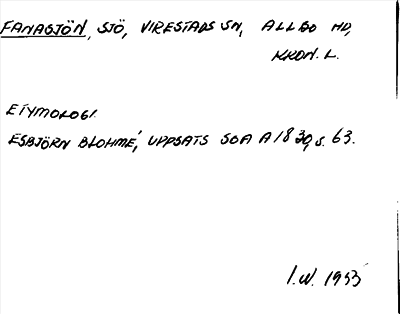 FANAGJÖN, SJÖ, VIRESTADS SN, ALLBO HD,
KRON. L.
ETYMOLOGI.
ESBJÖRN BLOHMÉ, UPPSATS SOA A 1830, s. 63.
I.W. 1953